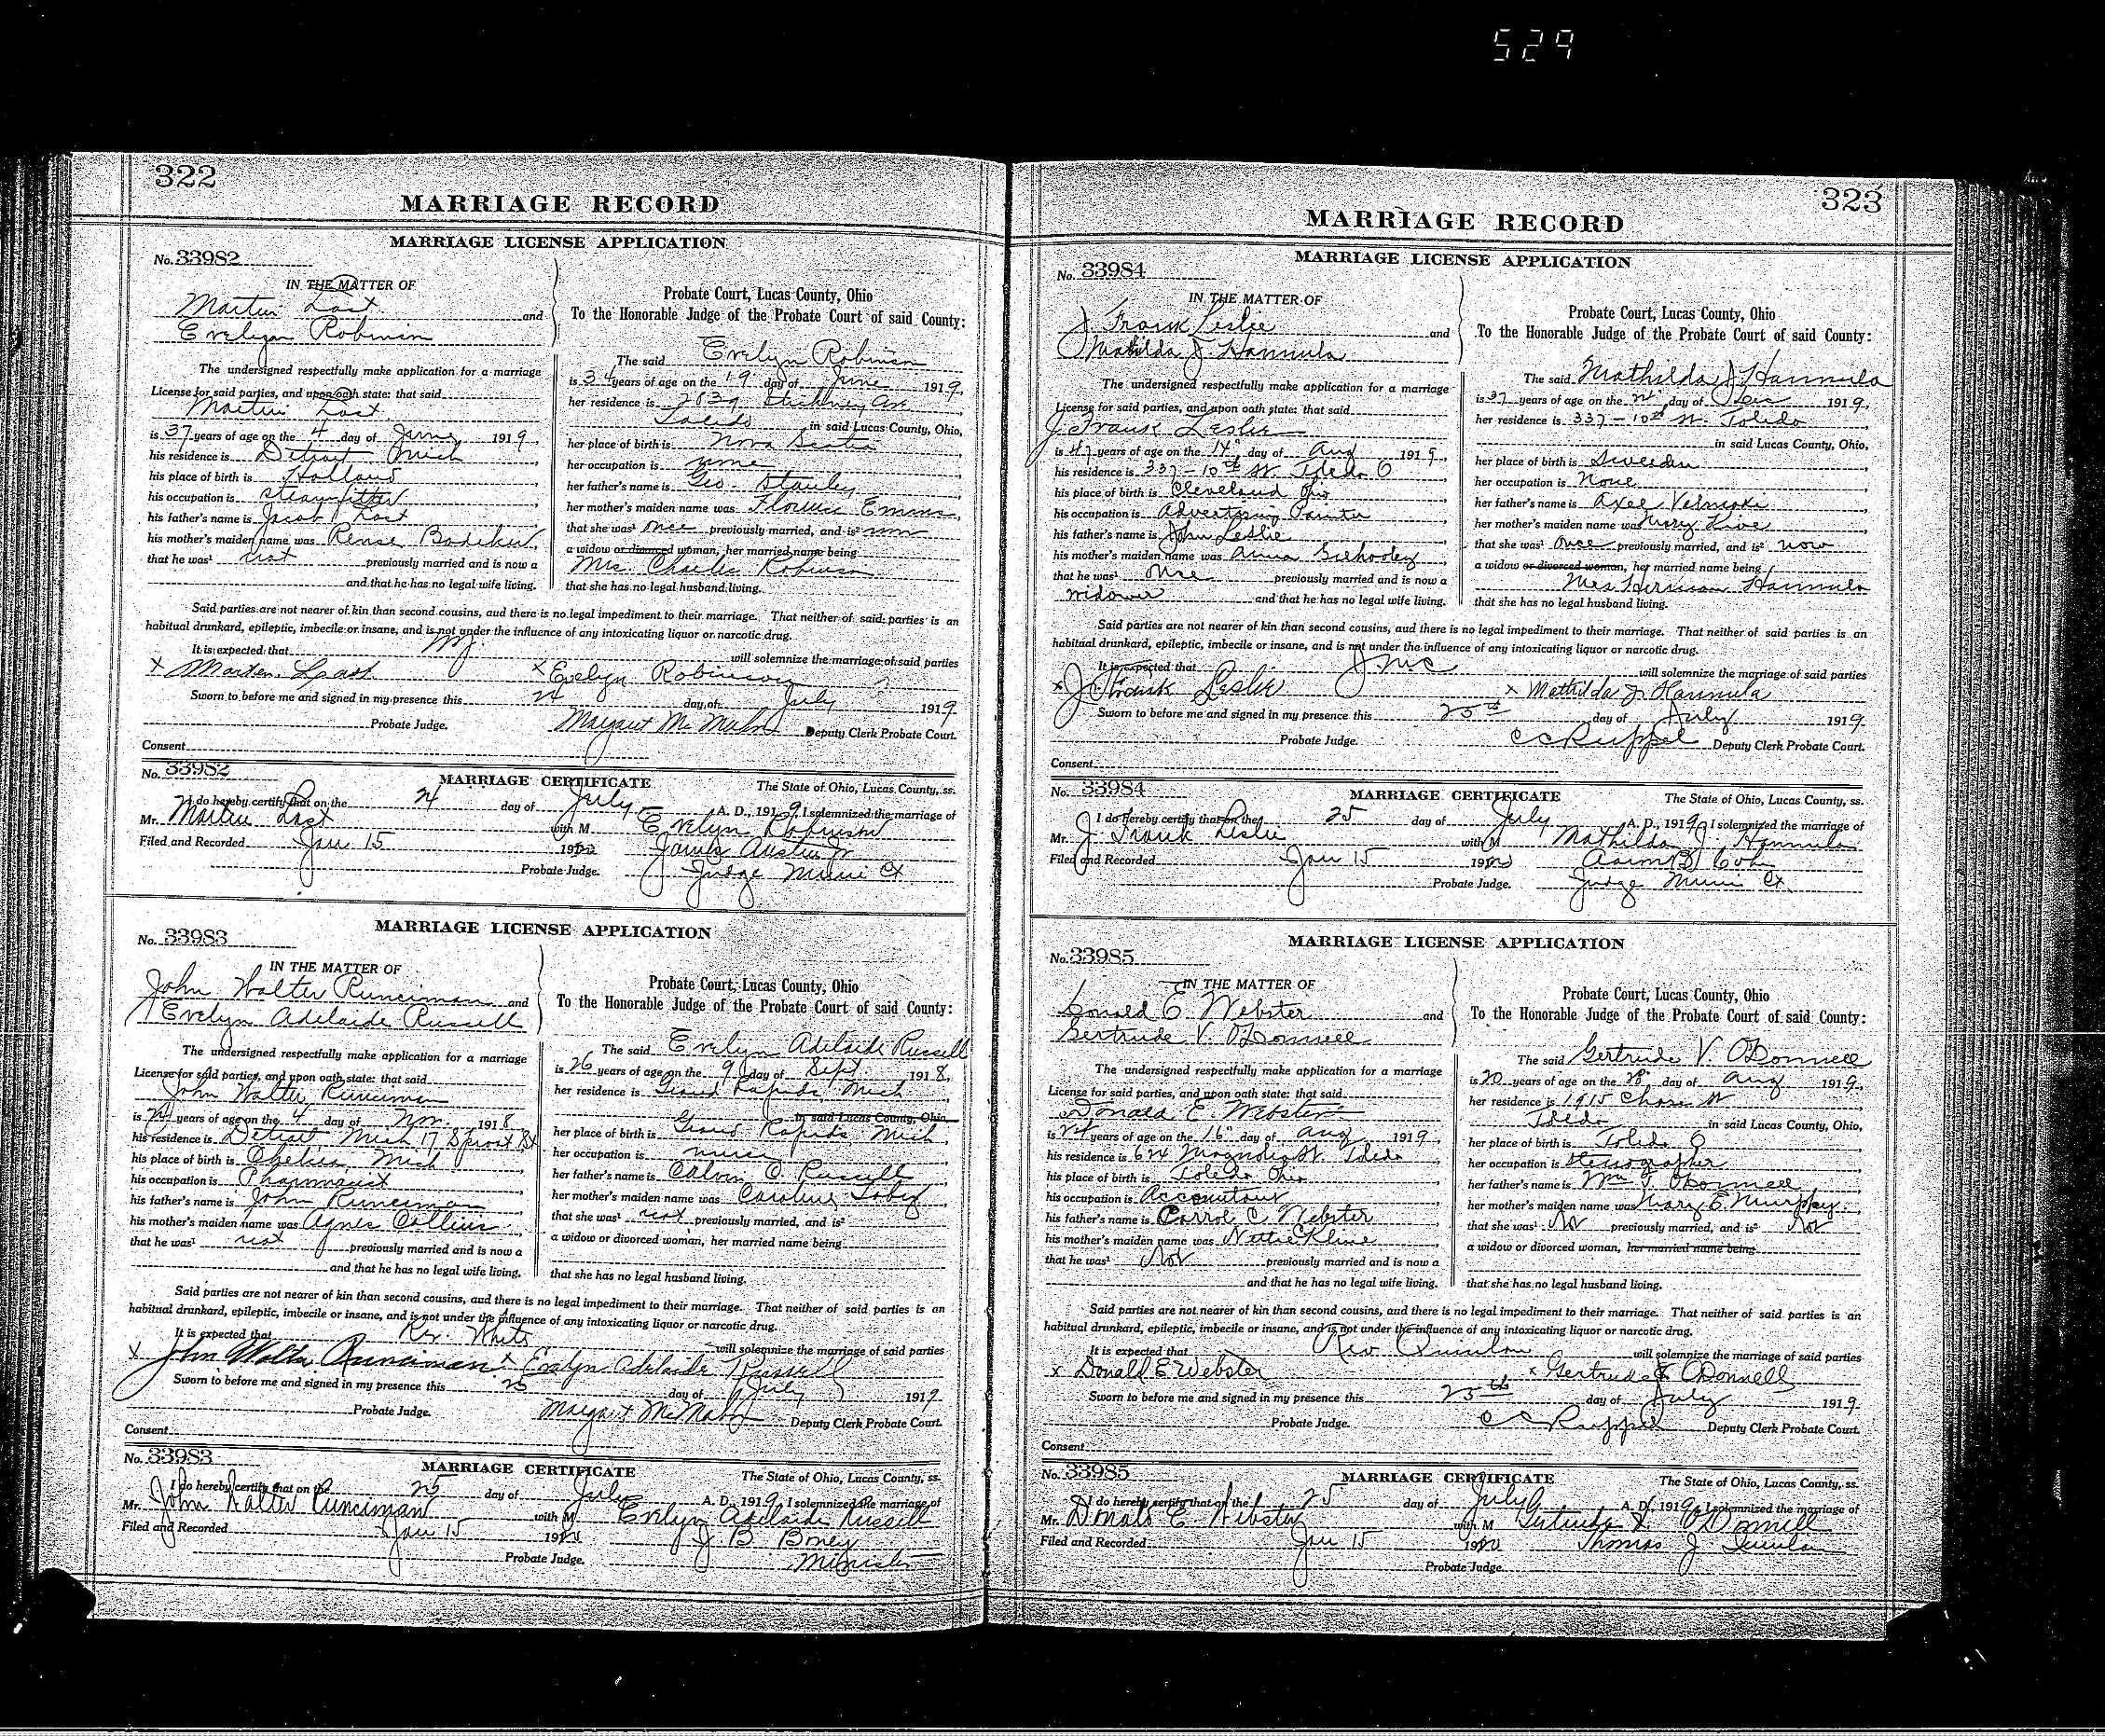 529
322
MARRIAGE RECORD
MARRIAGE LICENSE APPLICATION
No. 33982
IN THE MATTER OF
Martin Last
and
Evelyn Robinson
Probate Court, Lucas County, Ohio
To the Honorable Judge of the Probate Court of said County:
The undersigned respectfully make application for a marriage
License for said parties, and upon oath state: that said
Martin Last
is 37 years of age on the 4 day of June 1919,
his residence is Detroit Mich
his place of birth is Holland
his occupation is steamfitter
his father's name is Jacob Last
his mother's maiden name was
that he was¹ not previously married and is now a
and that he has no legal wife living.
The said Evelyn Robinson
is 34 years of age on the 19 day of June 1919,
her residence is 2039 Stickney Ave
Toledo in said Lucas County, Ohio,
her place of birth is Nova Scotia
her occupation is none
her father's name is Geo. Stanley
her mother's maiden name was Florence Emms,
that she was¹ once previously married, and is² now
a widow or divorced woman, her married name being
Mrs. Charles Robinson
that she has no legal husband living.
Said parties are not nearer of kin than second cousins, and there is no legal impediment to their marriage. That neither of said parties is an
habitual drunkard, epileptic, imbecile or insane, and is not under the influence of any intoxicating liquor or narcotic drug.
It is expected that will solemnize the marriage of said parties
x Marten Last x Evelyn Robinson
Sworn to before me and signed in my presence this 24 day of July 1919
Probate Judge. Margaret McMahon Deputy Clerk Probate Court.
Consent
No. 33982
MARRIAGE CERTIFICATE
The State of Ohio, Lucas County, ss.
I do hereby certify that on the 24 day of July A. D., 1919, I solemnized the marriage of
Mr. Martin Last with M Evelyn Robinson
Filed and Recorded Jan 15 1920 James Austin Jr
Probate Judge. Judge Muni Ct
MARRIAGE LICENSE APPLICATION
No. 33983
IN THE MATTER OF
John Walter Runciman and
Evelyn Adelaide Russell
Probate Court, Lucas County, Ohio
To the Honorable Judge of the Probate Court of said County:
The undersigned respectfully make application for a marriage
License for said parties, and upon oath state: that said
John Walter Runciman
is 24 years of age on the 4 day of Nov. 1918
his residence is Detroit Mich 17 Sproat St
his place of birth is Chelsea Mich
his occupation is Pharmacist
his father's name is John Runciman
his mother's maiden name was Agnes Collins
that he was¹ not previously married and is now a
and that he has no legal wife living.
The said Evelyn Adelaide Russell
is 26 years of age on the 9 day of Sept 1918,
her residence is Grand Rapids Mich
in said Lucas County, Ohio
her place of birth is Grand Rapids Mich,
her occupation is nurse
her father's name is Calvin O. Russell
her mother's maiden name was Caroline Tobey
that she was¹ not previously married, and is²
a widow or divorced woman, her married name being
that she has no legal husband living.
Said parties are not nearer of kin than second cousins, and there is no legal impediment to their marriage. That neither of said parties is an
habitual drunkard, epileptic, imbecile or insane, and is not under the influence of any intoxicating liquor or narcotic drug.
It is expected that Rev. White will solemnize the marriage of said parties
x John Walter Runciman x Evelyn Adelaide Russell
Sworn to before me and signed in my presence this 25 day of July 1919
Probate Judge. Margaret McMahon Deputy Clerk Probate Court.
Consent
No. 33983
MARRIAGE CERTIFICATE
The State of Ohio, Lucas County, ss.
I do hereby certify that on the 25 day of July A. D., 1919, I solemnized the marriage of
Mr. John Walter Runciman with M Evelyn Adelaide Russell
Filed and Recorded Jan 15 1920 J B
Probate Judge. Minister
323
MARRIAGE RECORD
MARRIAGE LICENSE APPLICATION
No. 33984
IN THE MATTER OF
J Frank Leslie
and
Mathilda J. Hannula
Probate Court, Lucas County, Ohio
To the Honorable Judge of the Probate Court of said County:
The undersigned respectfully make application for a marriage
License for said parties, and upon oath state: that said
J Frank Leslie
is 47 years of age on the 14" day of Aug 1919,
his residence is 337-10th St. Toledo O
his place of birth is Cleveland Ohio
his occupation is Advertising Painter
his father's name is John Leslie
his mother's maiden name was Anna
that he was¹ Once previously married and is now a
widower and that he has no legal wife living.
The said Mathilda J Hannula
is 37 years of age on the day of Dec 1919,
her residence is 337-10th St. Toledo
in said Lucas County, Ohio,
her place of birth is Sweden
her occupation is None
her father's name is Axel
her mother's maiden name was Mary
that she was¹ Once previously married, and is² now
a widow or divorced woman, her married name being
Mrs Herman Hannula
that she has no legal husband living.
Said parties are not nearer of kin than second cousins, and there is no legal impediment to their marriage. That neither of said parties is an
habitual drunkard, epileptic, imbecile or insane, and is not under the influence of any intoxicating liquor or narcotic drug.
It is expected that will solemnize the marriage of said parties
x J. Frank Leslie x Mathilda J. Hannula
Sworn to before me and signed in my presence this 25th day of July 1919.
Probate Judge. C C Ruppel Deputy Clerk Probate Court.
Consent
No. 33984
MARRIAGE CERTIFICATE
The State of Ohio, Lucas County, ss.
I do hereby certify that on the 25 day of July A. D., 1919, I solemnized the marriage of
Mr. J Frank Leslie with M Mathilda J Hannula
Filed and Recorded Jan 15 1920 Aaron B Cohn
Probate Judge. Judge Muni Ct
MARRIAGE LICENSE APPLICATION
No. 33985
IN THE MATTER OF
Donald E. Webster and
Gertrude V. O'Donnell
Probate Court, Lucas County, Ohio
To the Honorable Judge of the Probate Court of said County:
The undersigned respectfully make application for a marriage
License for said parties, and upon oath state: that said
Donald E. Webster
is years of age on the 16" day of Aug 1919,
his residence is 624 Magnolia St. Toledo
his place of birth is Toledo Ohio
his occupation is Accountant
his father's name is Carrol C. Webster
his mother's maiden name was Nettie Kline
that he was¹ Not previously married and is now a
and that he has no legal wife living.
The said Gertrude V. O'Donnell
is 20 years of age on the 28" day of Aug 1919.
her residence is 1915 Chase St
Toledo in said Lucas County, Ohio,
her place of birth is Toledo O
her occupation is stenographer
her father's name is Wm J. O'Donnell
her mother's maiden name was Mary E. Murphy.
that she was¹ Not previously married, and is² Not
a widow or divorced woman, her married name being
that she has no legal husband living.
Said parties are not nearer of kin than second cousins, and there is no legal impediment to their marriage. That neither of said parties is an
habitual drunkard, epileptic, imbecile or insane, and is not under the influence of any intoxicating liquor or narcotic drug.
It is expected that Rev Quinlan will solemnize the marriage of said parties
x Donald E Webster x Gertrude O'Donnell
Sworn to before me and signed in my presence this 25th day of July 1919.
Probate Judge. C C Ruppel Deputy Clerk Probate Court.
Consent
No. 33985
MARRIAGE CERTIFICATE
The State of Ohio, Lucas County, ss.
I do hereby certify that on the 25 day of July A. D. 1919, I solemnized the marriage of
Mr. Donald E. Webster with M Gertrude V. O'Donnell
Filed and Recorded Jan 15 1920 Thomas J Quinlan
Probate Judge.